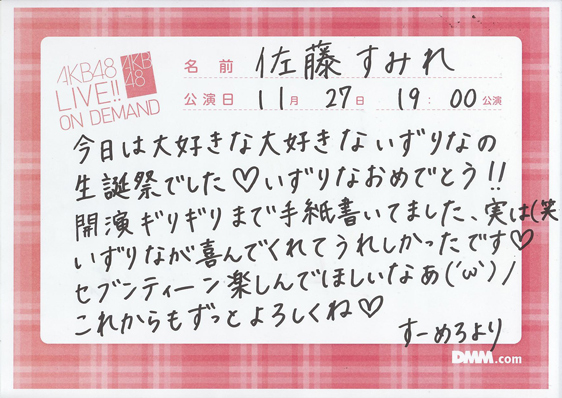 AKB48
LIVE!!
ON DEMAND
AKB
48
名前 佐藤すみれ
公演日 11月 27日 19:00公演
今日は大好きな大好きないずりなの
生誕祭でした♡いずりなおめでとう!!
開演ギリギリまで手紙書いてました、実は(笑
いずりなが喜んでくれてうれしかったです♡
セブンティーン楽しんでほしいなあ(´ω`)ノ
これからもずっとよろしくね♡
すーめろより
DMM.com